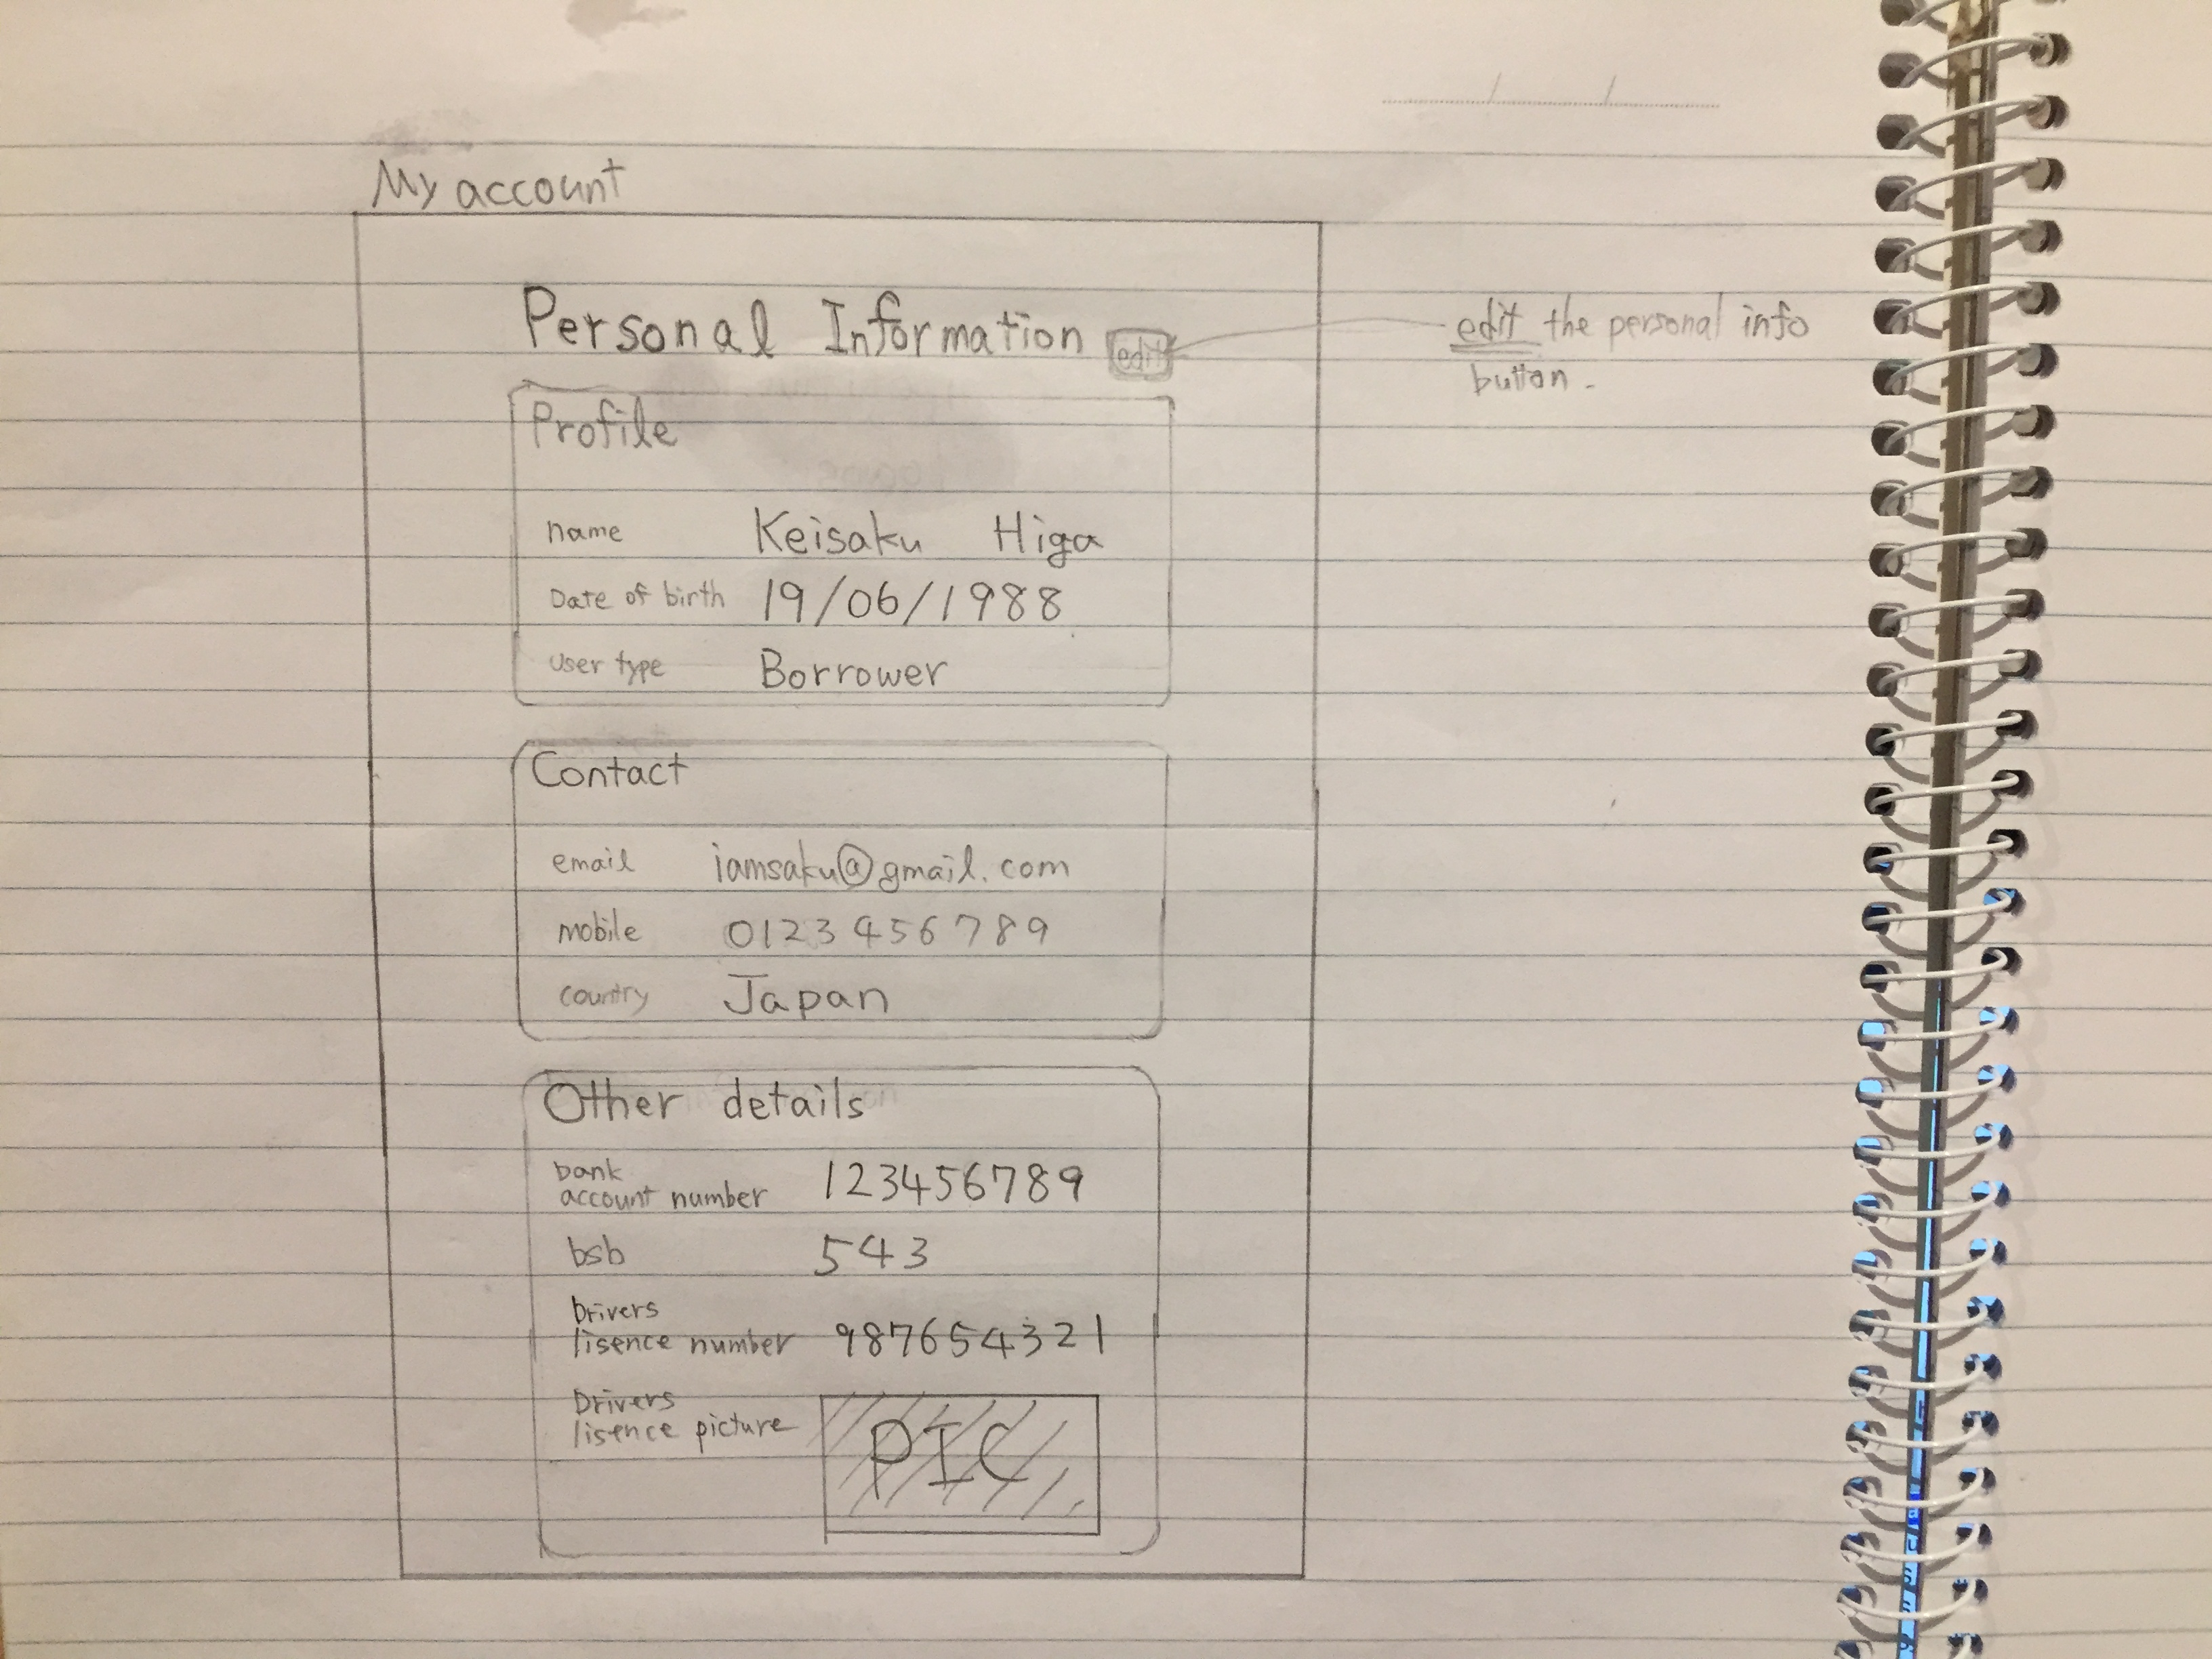 My account
Personal Information
edit
edit the personal info
button.
Profile
name Keisaku Higa
Date of birth 19/06/1988
User type Borrower
Contact
email iamsaku@gmail.com
mobile 0123 456 789
country Japan
Other details
bank
account number 123456789
bsb 543
Drivers
lisence number 987654321
Drivers
lisence picture
PIC